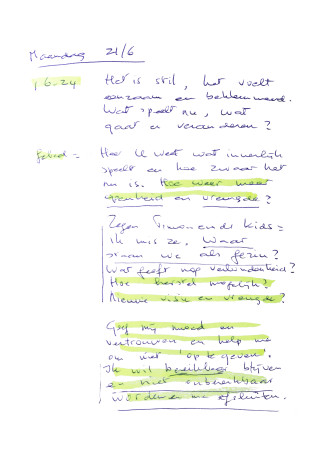 Maandag 21/6
16.24 Het is stil, het voelt
eenzaam en beklemmend.
Wat speelt nu, wat
gaat er veranderen?
gebed = Heer U weet wat innerlijk
speelt en hoe zwaar het
nu is. Hoe weer meer
openheid en vreugde?
Zegen Timon en de kids =
ik mis ze. Waar
staan we als gezin?
Wat geeft nog verbondenheid?
Hoe herstel mogelijk?
Nieuwe visie en vreugde?
Geef mij moed en
vertrouwen en help me
om niet 'op te geven'.
Ik wil bereikbaar blijven
en niet onbereikbaar
worden en me afsluiten.